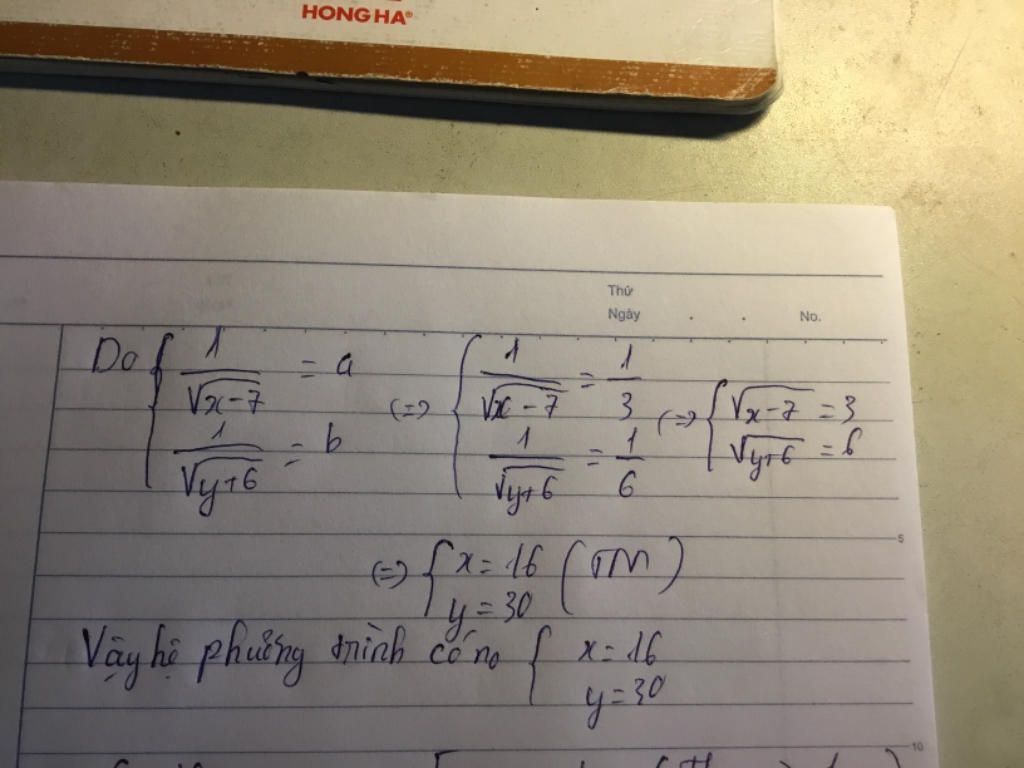 HONG HA®
Thứ
Ngày . . No.
Do { 1/√(x-7) = a (=) { 1/√(x-7) = 1/3 (=) { √(x-7) = 3
1/√(y+6) = b 1/√(y+6) = 1/6 √(y+6) = 6
5
(=) { x = 16 (TM)
y = 30
Vậy hệ phương trình có no { x = 16
y = 30
10